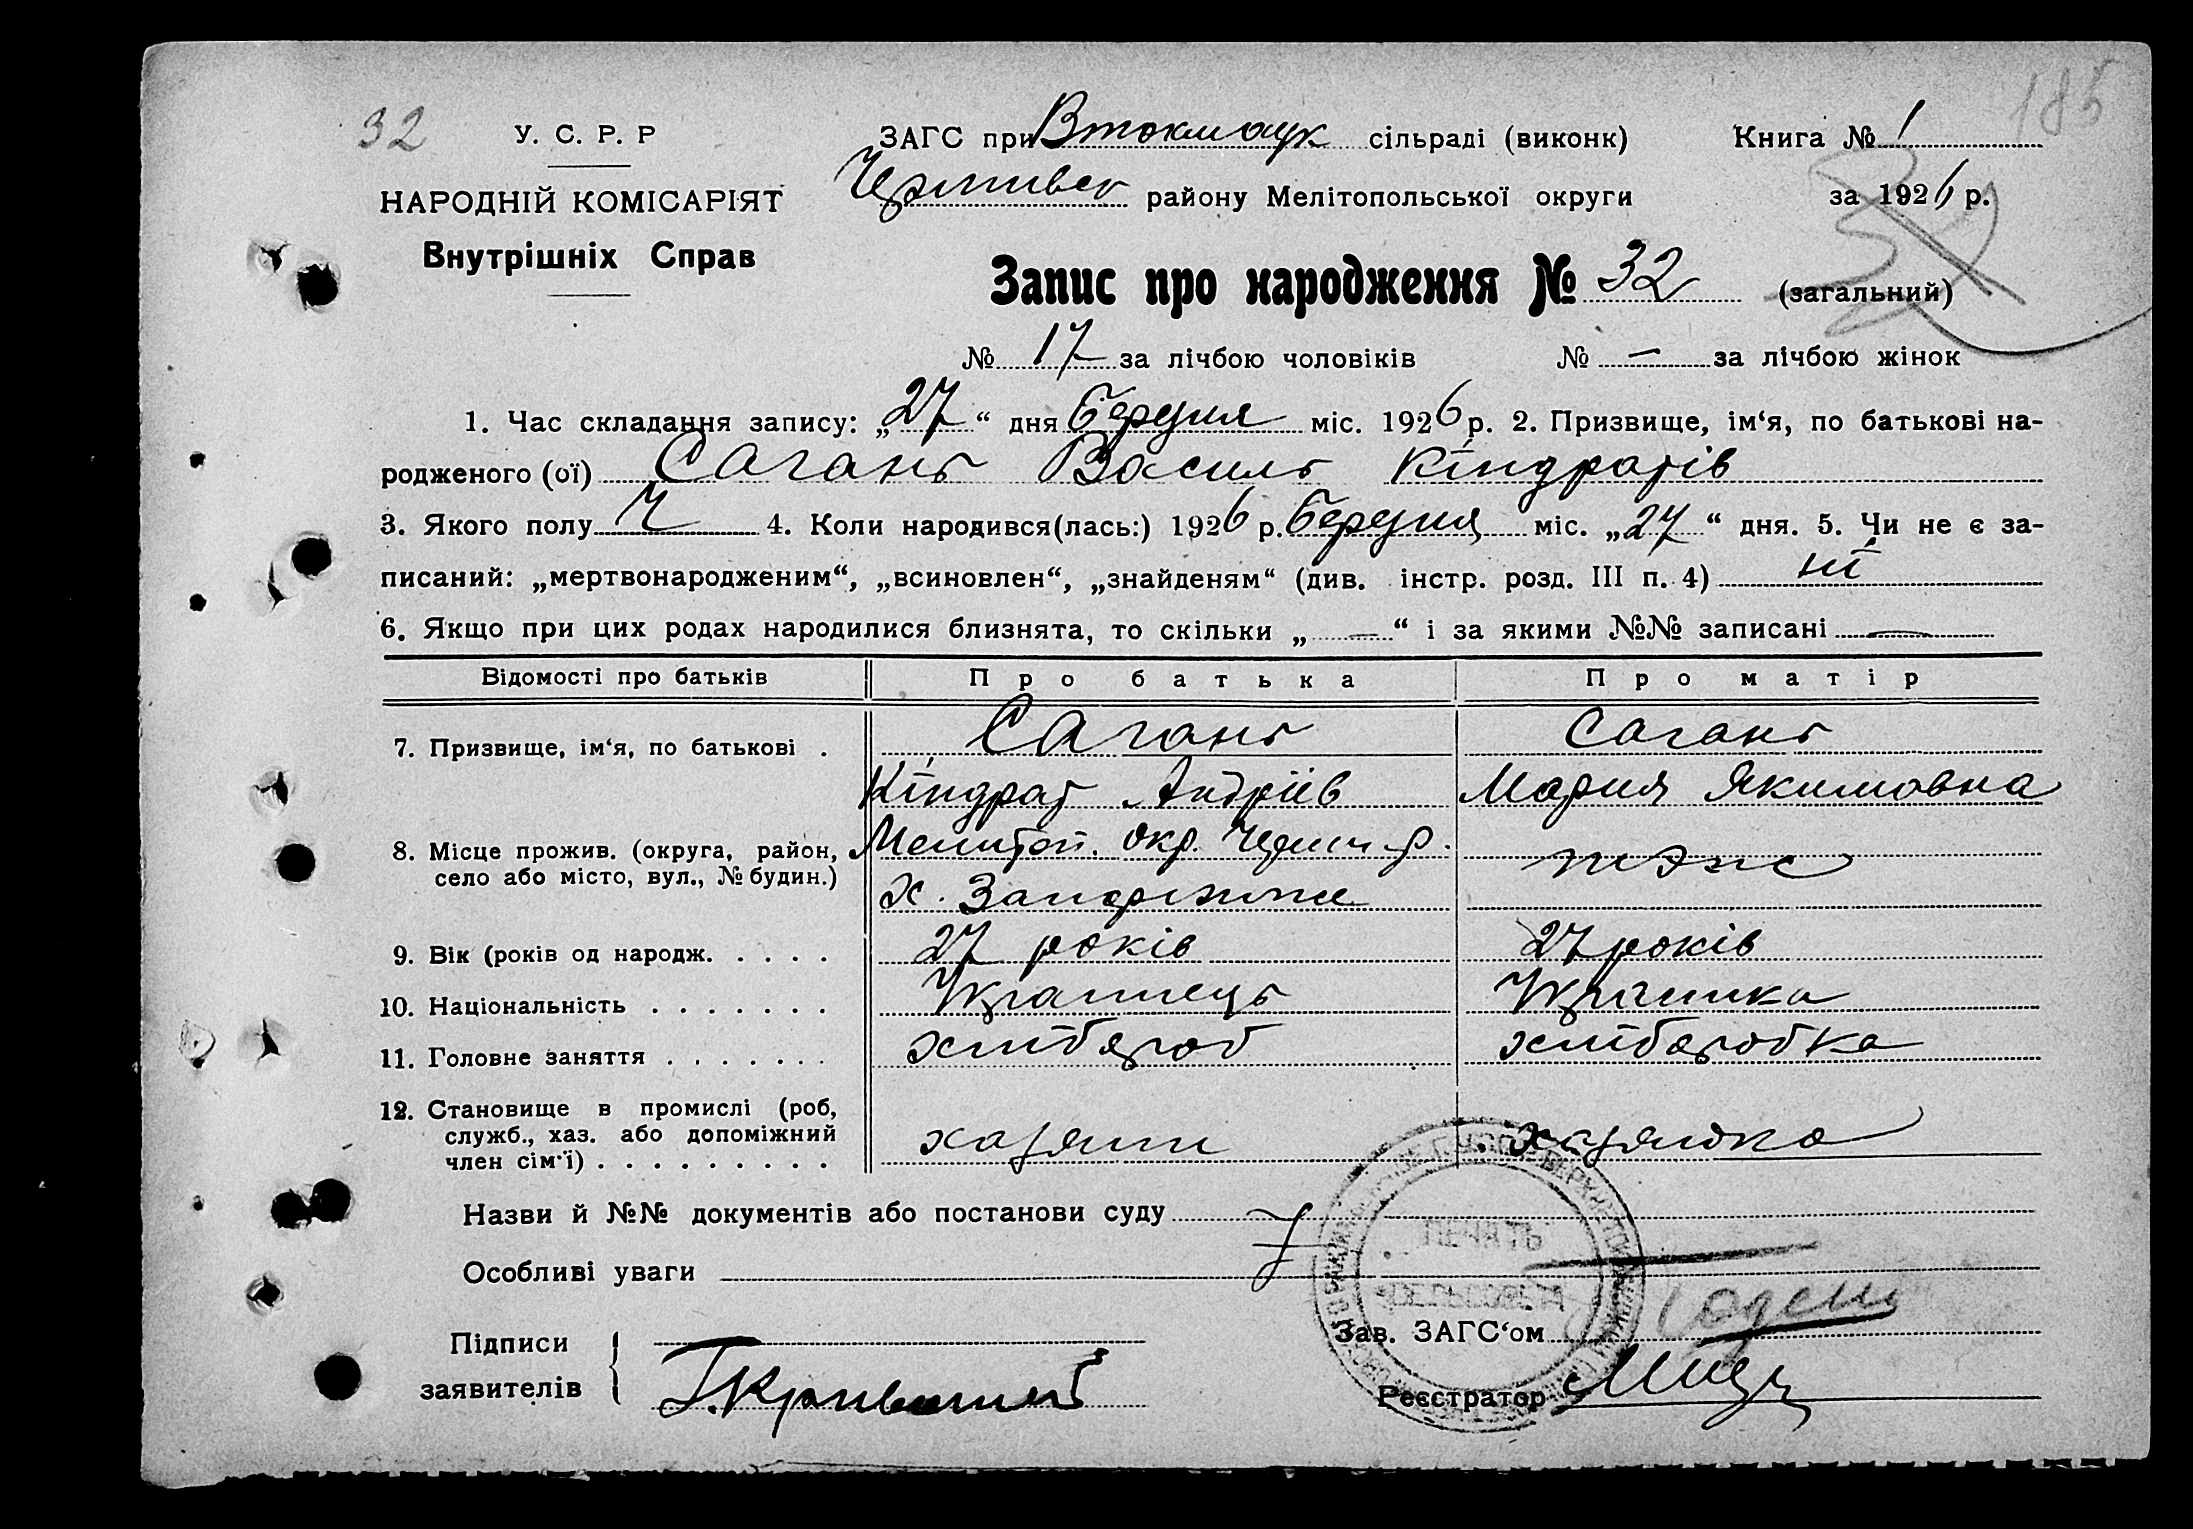 185
32 У. С. Р. Р ЗАГС при Втокмаук сільраді (виконк) Книга № 1
НАРОДНІЙ КОМІСАРІЯТ району Мелітопольської округи за 1926 р.
Внутрішніх Справ
Запис про народження № 32 (загальний)
№ 17 за лічбою чоловіків № — за лічбою жінок
1. Час складання запису: „27“ дня Березня міс. 1926 р. 2. Призвище, ім‘я, по батькові на-
родженого (ої) Сагань Василь Кіндратів
3. Якого полу Ч 4. Коли народився(лась:) 1926 р. Березня міс. „27“ дня. 5. Чи не є за-
писаний: „мертвонародженим“, „всиновлен“, „знайденям“ (див. інстр. розд. III п. 4) ні
6. Якщо при цих родах народилися близнята, то скільки „ — “ і за якими №№ записані —
Відомості про батьків Про батька Про матір
7. Призвище, ім‘я, по батькові . Сагань Сагань
Кіндрат Андріїв Мария Якимовна
8. Місце прожив. (округа, район, Мелитоп. окр. р.
село або місто, вул., № будин.) х.
9. Вік (років од народж. . . . . 27 років 27 років
10. Національність . . . . . . . Українець Українка
11. Головне заняття . . . . . . . хлібороб хліборобка
12. Становище в промислі (роб,
служб., хаз. або допоміжний хазяин хазяюка
член сім‘ї) . . . . . . . . .
Назви й №№ документів або постанови суду
Особливі уваги
ПЕЧАТЬ
Підписи Зав. ЗАГС‘ом
заявителів Реєстратор